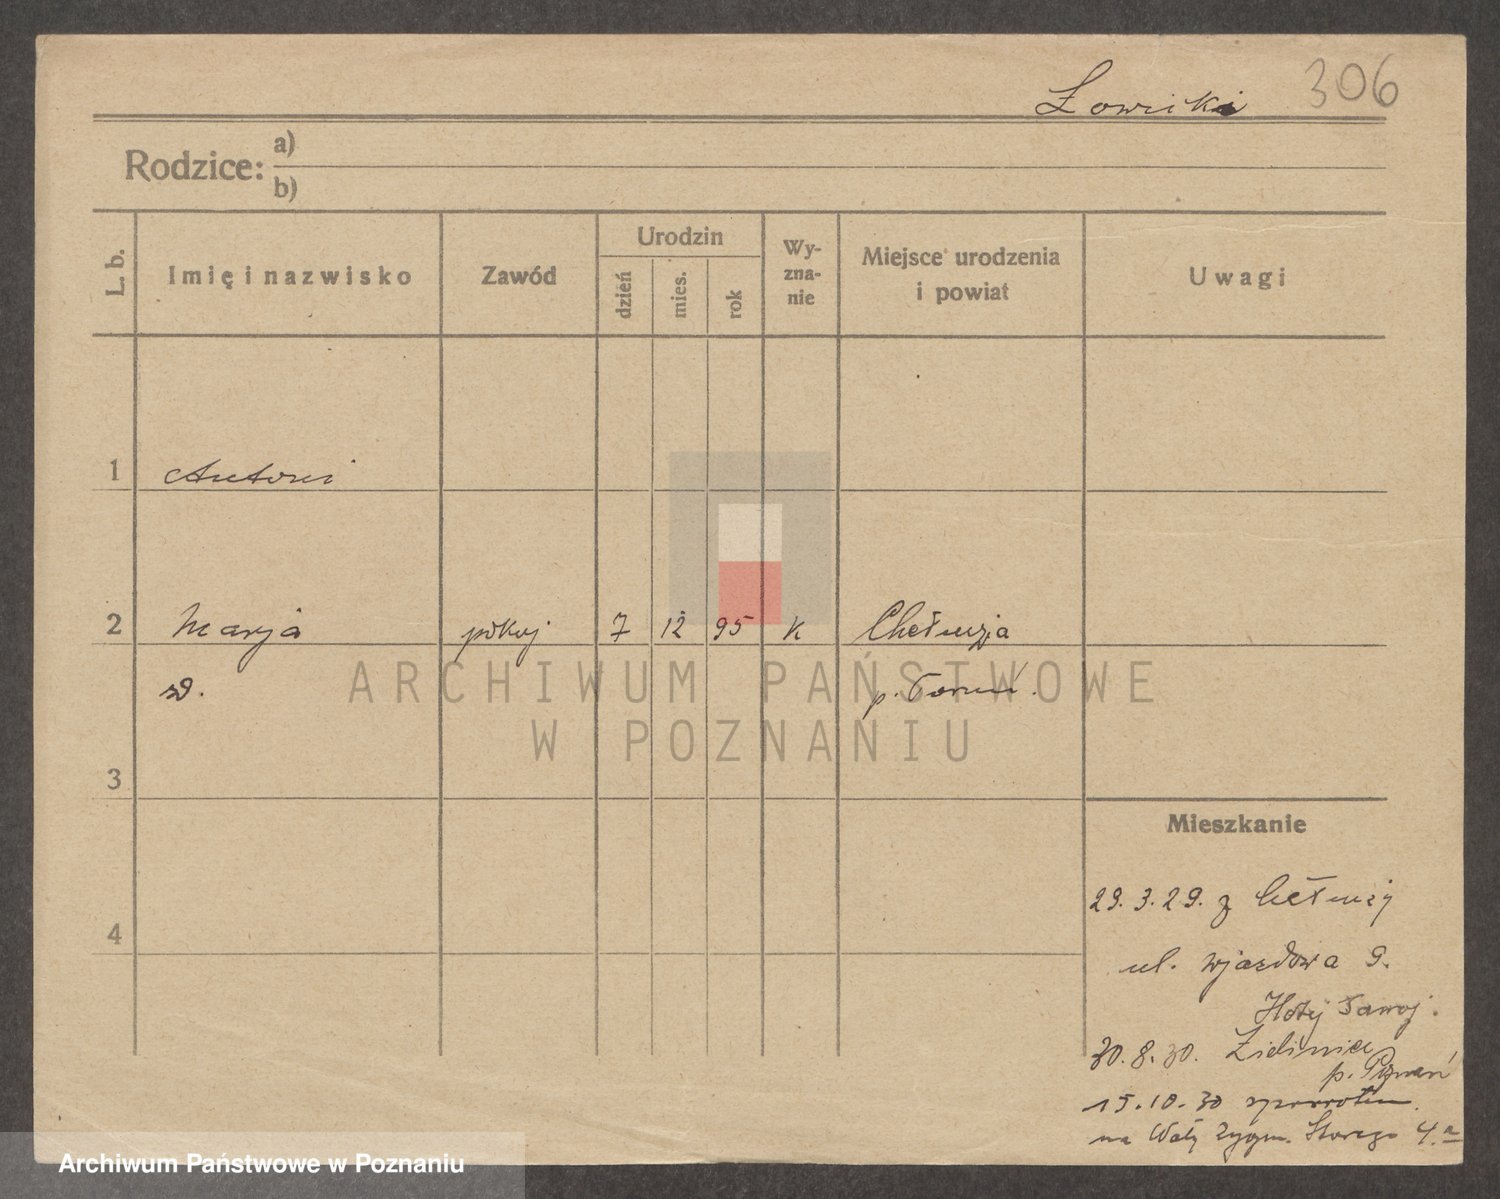 Łowicki 306
Rodzice: a)
b)
L. b. Imię i nazwisko Zawód Urodzin dzień mies. rok Wyznanie Miejsce urodzenia i powiat Uwagi
1 Antoni
2 Marja pokoj 7 12 95 k Chełmża
p. Toruń.
3
4
Mieszkanie
29.3.29. z Chełmży
ul. Wjazdowa 9.
30.8.30.
p. Poznań
15.10.30 zpowrotem
na Wały Zygm. Starego 4.a
ARCHIWUM PAŃSTWOWE
W POZNANIU
Archiwum Państwowe w Poznaniu